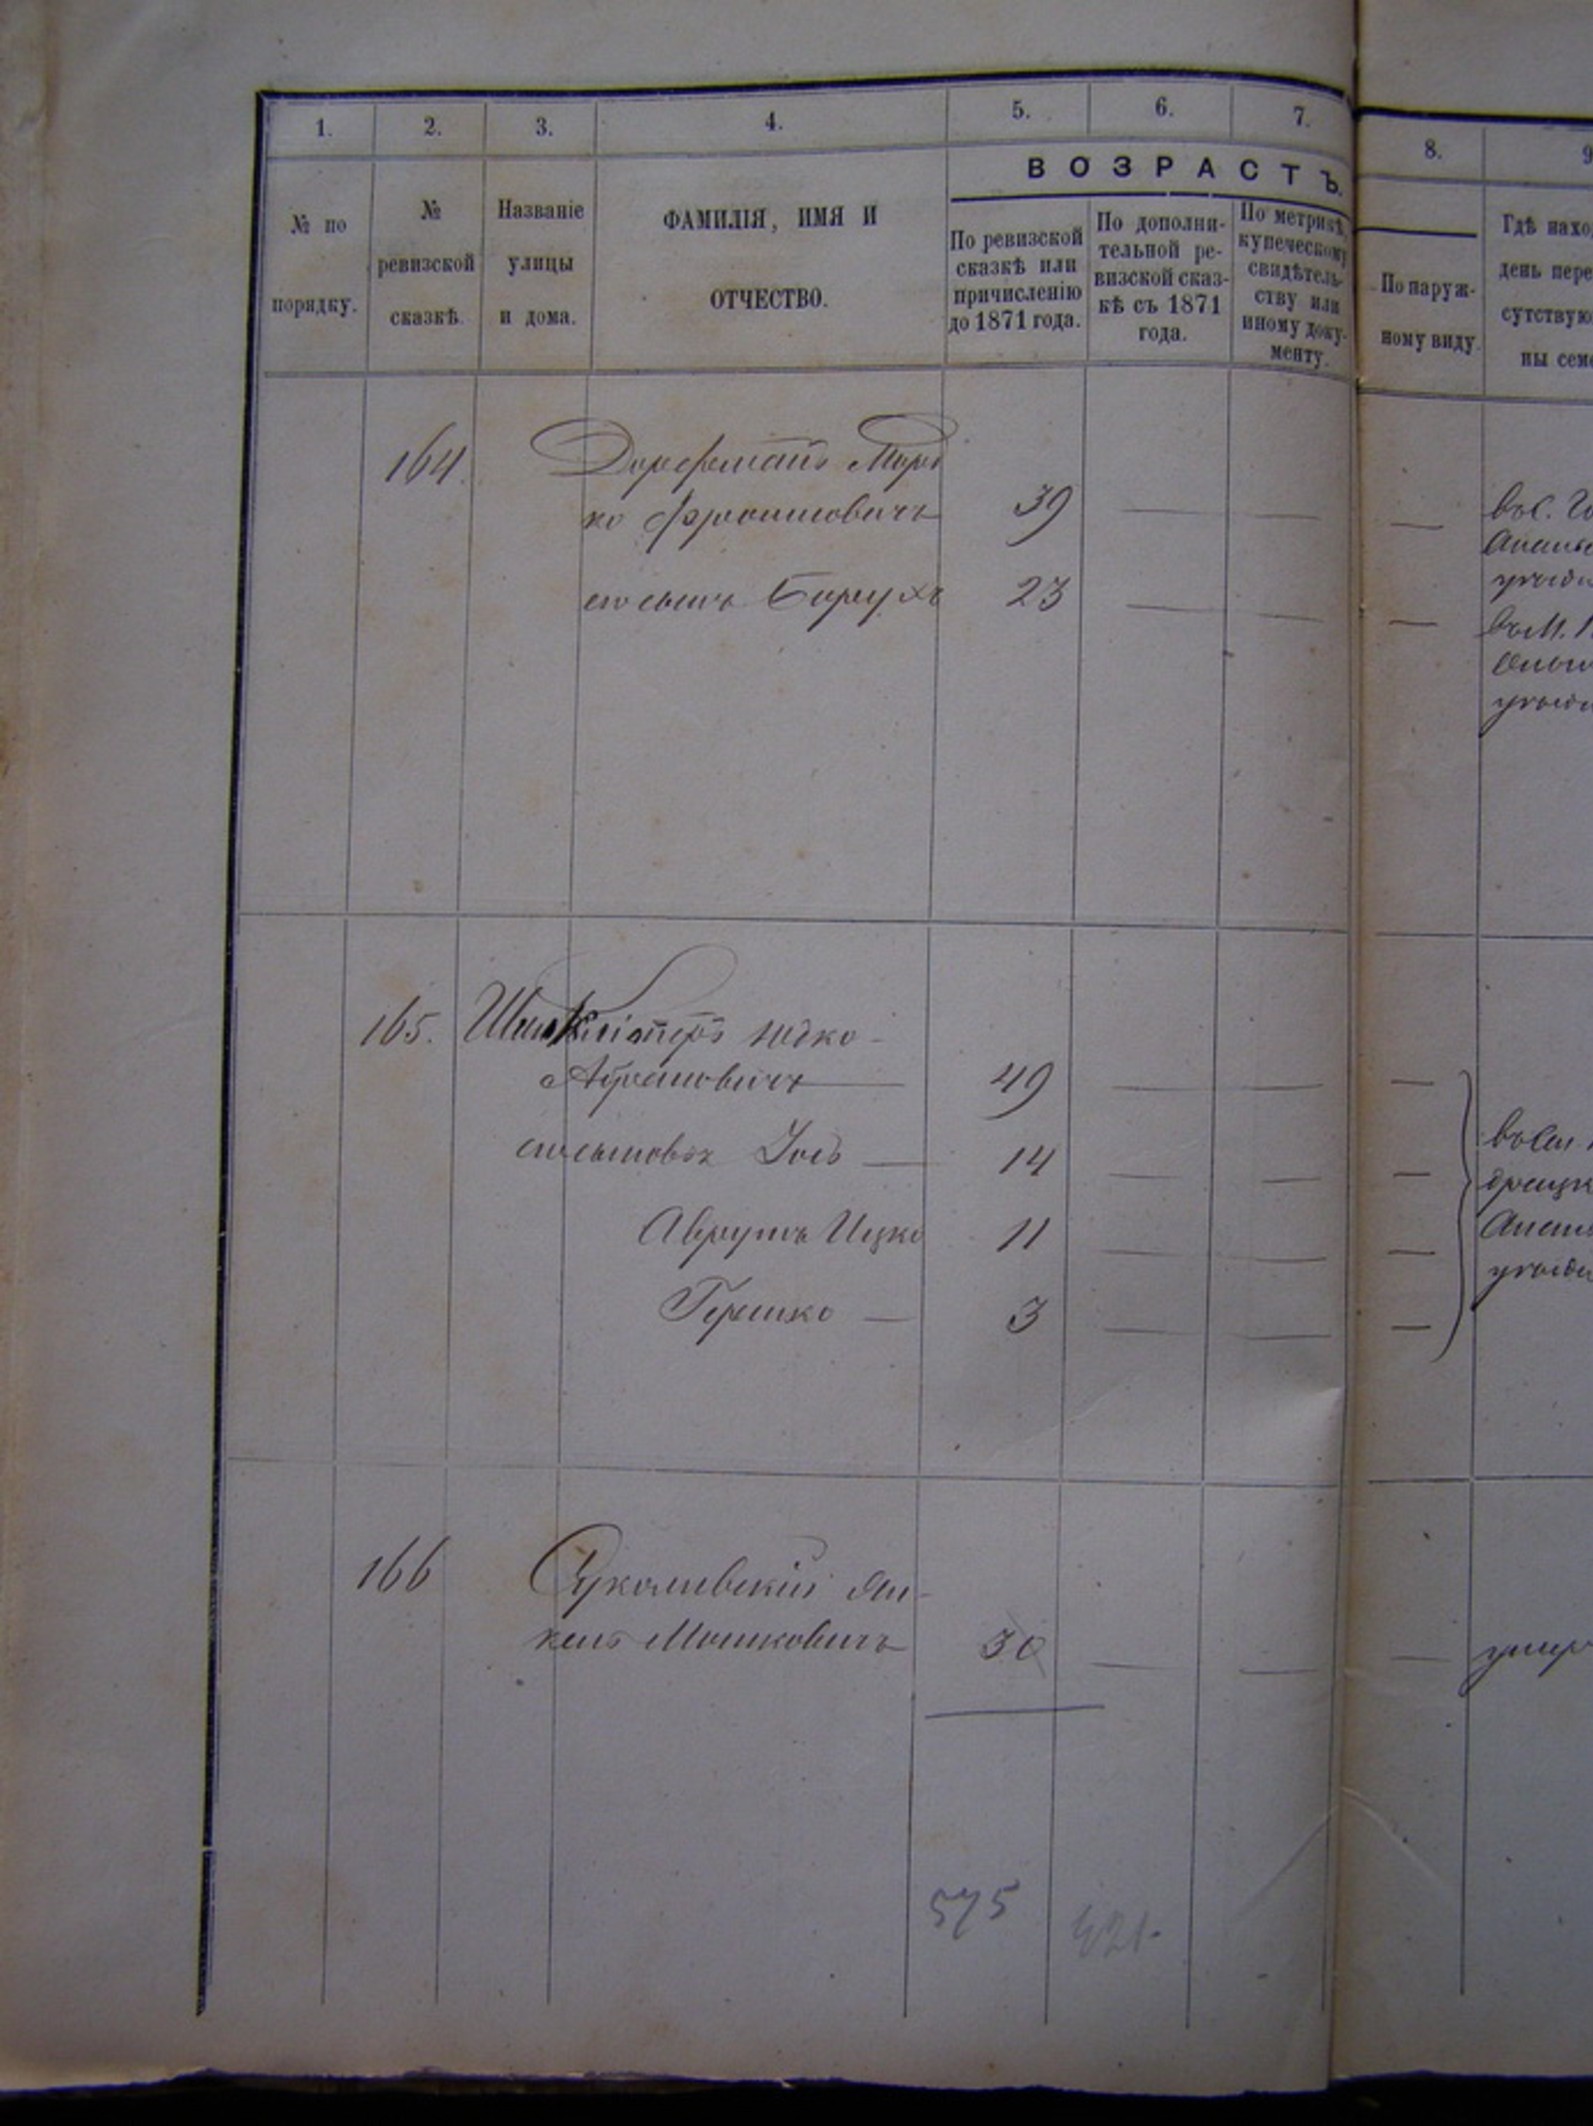 1. 2. 3. 4. 5. 6. 7. 8. 9
ВОЗРАСТЪ.
№ по
порядку.
№
ревизской
сказкѣ.
Названіе
улицы
и дома.
ФАМИЛІЯ, ИМЯ И
ОТЧЕСТВО.
По ревизской
сказкѣ или
причисленію
до 1871 года.
По дополни-
тельной ре-
визской сказ-
кѣ съ 1871
года.
По метрикѣ,
купеческому
свидѣтель-
ству или
иному доку-
менту.
По наруж-
ному виду.
Гдѣ нахо
день пере
сутствую
ны сем
164. Дорфманъ Морд
ко Фроимовичъ 39 — — —
его сынъ Борухъ 23 — — —
165. Юдко -
Абрамовичъ — 49 — — —
его сыновья Іось — 14 — — —
Аврумъ Ицко 11 — — —
Гершко — 3 — — —
166 Ян-
кель Мошковичъ 30 — — — умер
575